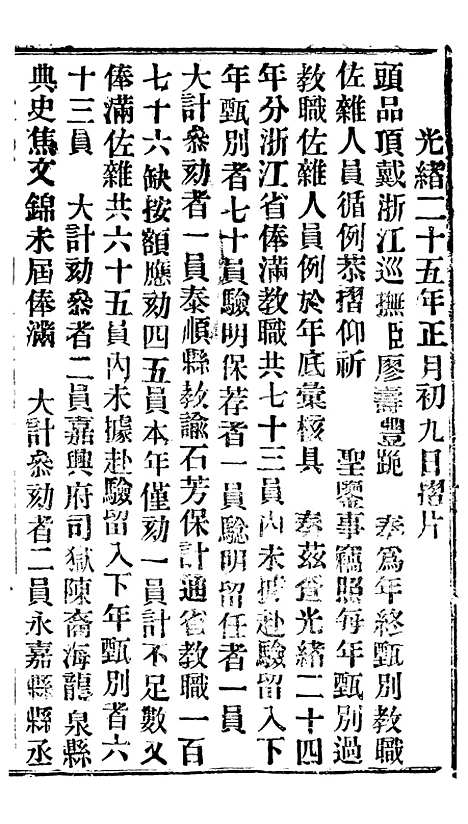 光緒二十五年正月初九日摺片
頭品頂戴浙江巡撫臣廖壽豐跪　奏爲年終甄別教職
佐雜人員循例恭摺仰祈　　聖鑒事竊照每年甄別過
教職佐雜人員例於年底彙核具　奏茲查光緒二十四
年分浙江省俸滿教職共七十三員內未據赴驗留入下
年甄別者七十員驗明保荐者一員驗明留任者一員
大計叅劾者一員泰順縣教諭石芳保計通省教職一百
七十六缺按額應劾四五員本年僅劾一員計不足數又
俸滿佐雜共六十五員內未據赴驗留入下年甄別者六
十三員　大計劾叅者二員嘉興府司獄陳裔海龍泉縣
典史焦文錦未屆俸滿　大計叅劾者二員永嘉縣縣丞